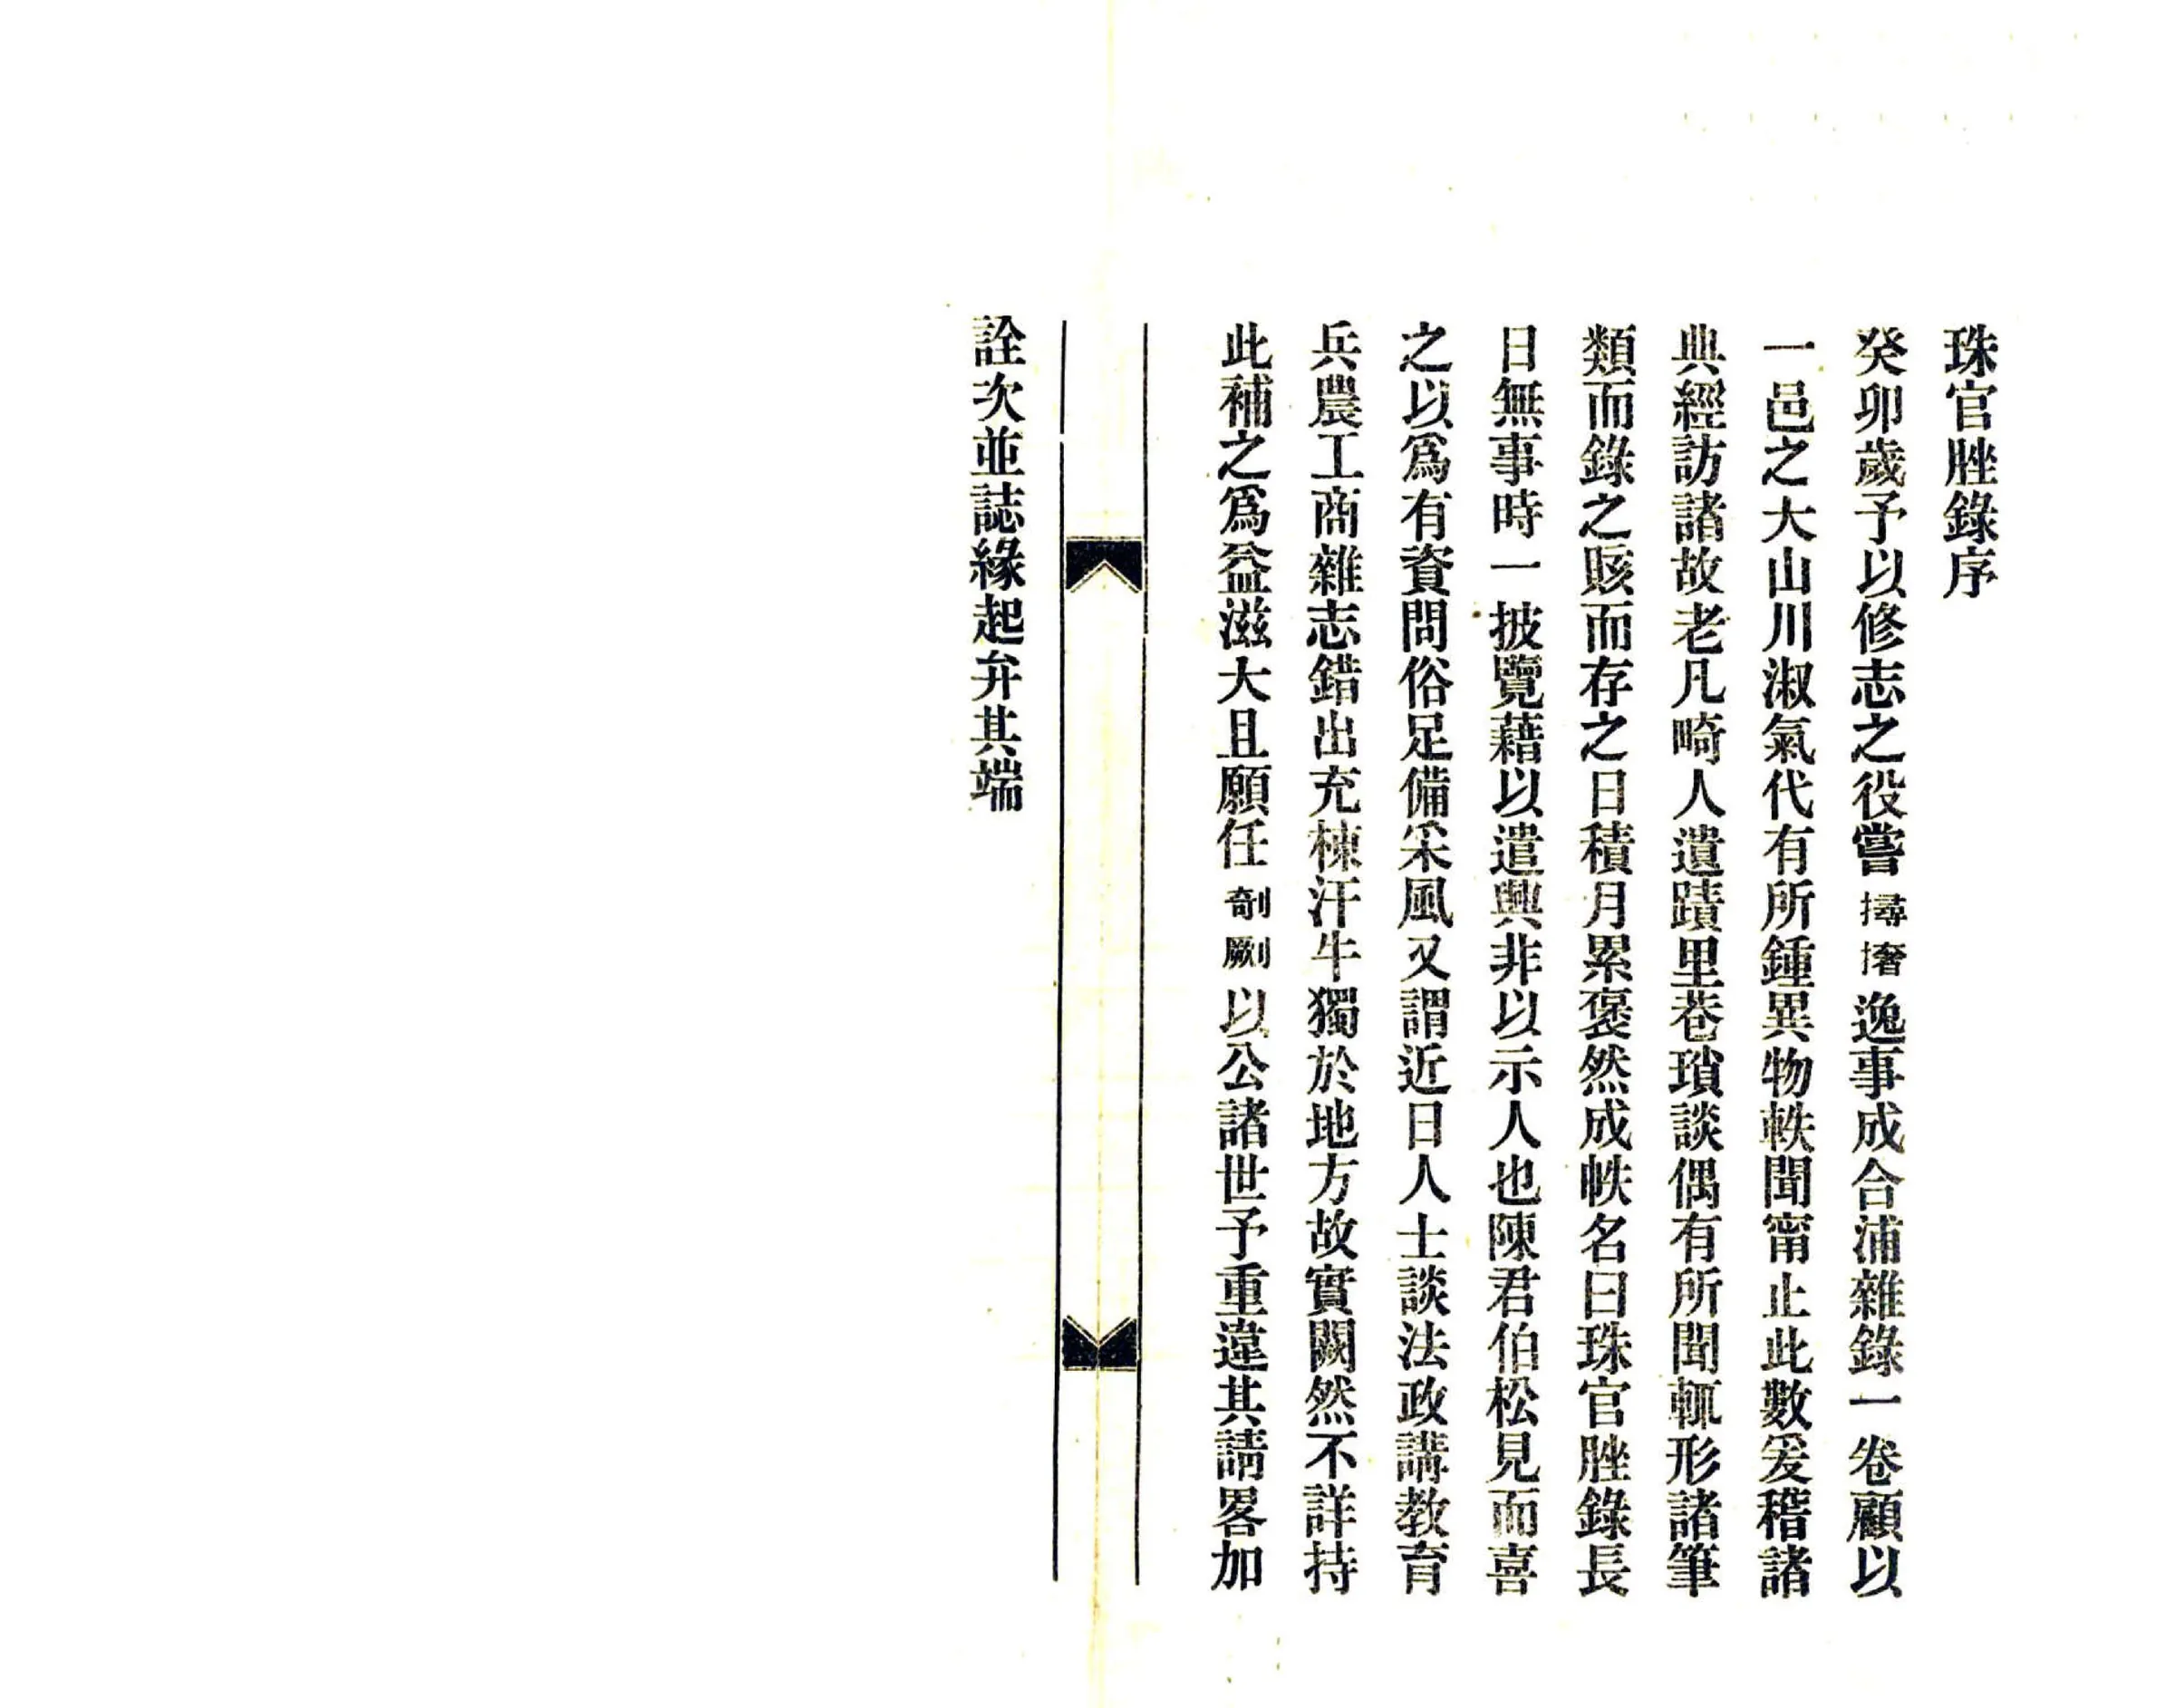 珠官脞錄序
癸卯歲予以修志之役嘗撏撦逸事成合浦雜錄一卷顧以
一邑之大山川淑氣代有所鍾異物軼聞甯止此數爰稽諸
典經訪諸故老凡畸人遺蹟里巷瑣談偶有所聞輒形諸筆
類而錄之賅而存之日積月累褒然成帙名曰珠官脞錄長
日無事時一披覽藉以遣興非以示人也陳君伯松見而喜
之以爲有資問俗足備采風又謂近日人士談法政講教育
兵農工商雜志錯出充棟汗牛獨於地方故實闕然不詳持
此補之爲益滋大且願任剞劂以公諸世予重違其請畧加
詮次並誌緣起弁其端